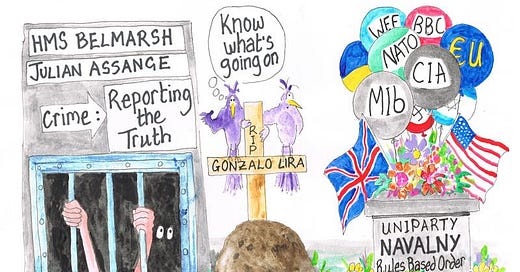 HMS BELMARSH
JULIAN ASSANGE
Crime:
Reporting
the
Truth
Know
what's
going on
RIP
GONZALO LIRA
WEF
BBC
NATO
EU
CIA
MI6
UNIPARTY
NAVALNY
Rules Based Order